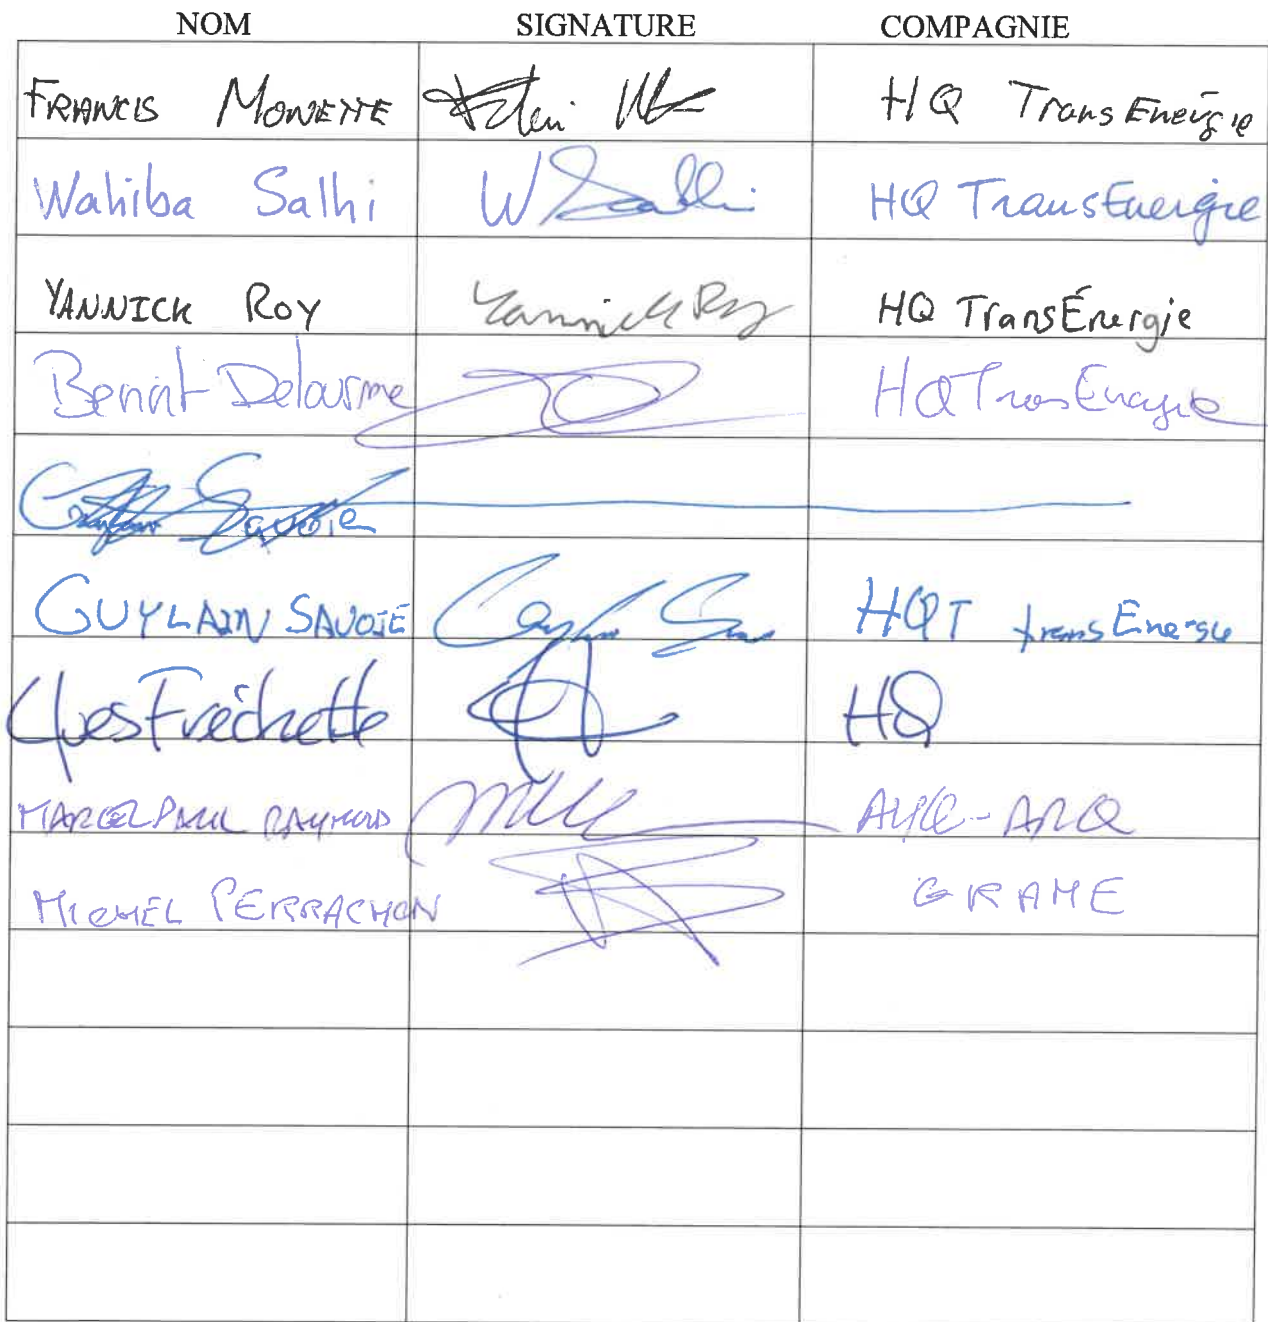 NOM SIGNATURE COMPAGNIE
FRANCIS MONETTE HQ TransEnergie
Wahiba Salhi W Salhi HQ TransEnergie
YANNICK ROY Yannick Roy HQ TransÉnergie
Benoit Delourme HQ TransEnergie
Savoie
GUYLAIN SAVOIE HQT transEnergie
Yves Fréchette HQ
MARCEL PAUL RAYMOND AHQ-ARQ
MICHEL PERRACHON GRAME